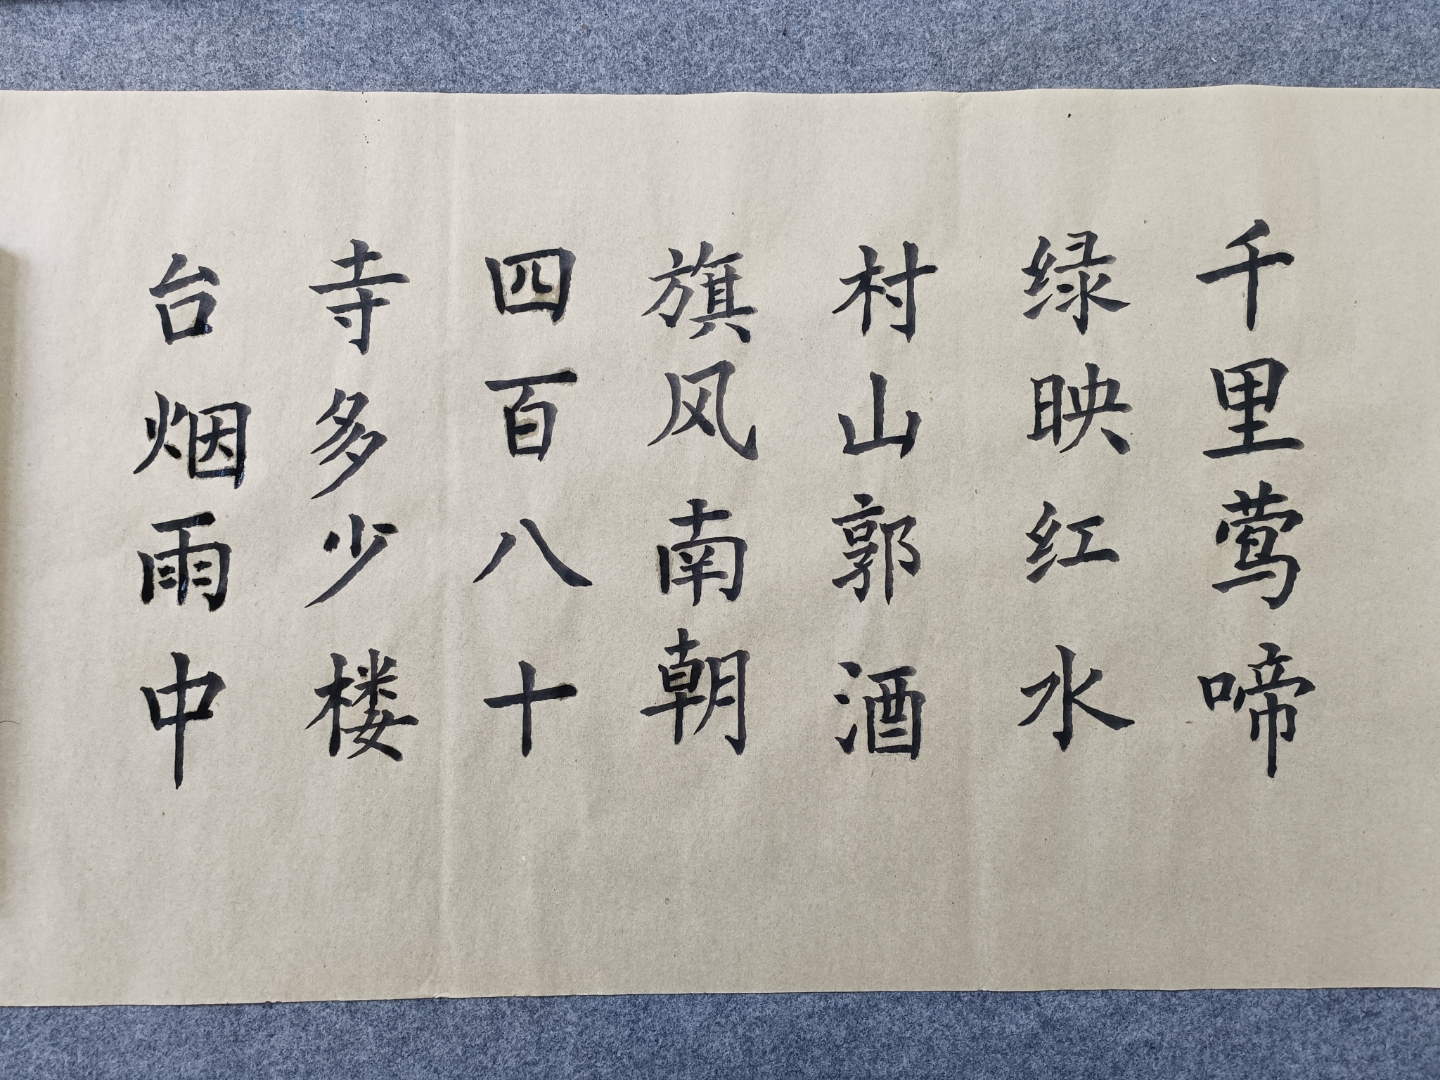 千里莺啼
绿映红水
村山郭酒
旗风南朝
四百八十
寺多少楼
台烟雨中